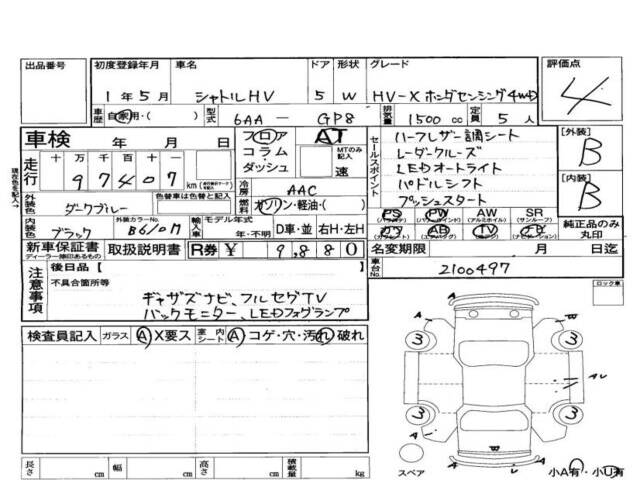 出品番号
初度登録年月 車名 ドア 形状 グレード 評価点
1年5月 シャトルHV 5 W HV-X ホンダセンシング4WD 4
車歴 自家用・( ) 型式 6AA - GP8 排気量 1500 cc 定員 5 人
車検 年 月 日 フロア コラム・ダッシュ AT MTのみ記入 速
走行 十 万 千 百 十 一
9 7 4 0 7 km
冷房 AAC
燃料 ガソリン・軽油・( )
セールスポイント
ハーフレザー調シート
レーダークルーズ
LEDオートライト
パドルシフト
プッシュスタート
[外装] B
[内装] B
外装色 ダークグレー 色替車は色替と記入
PS PW AW SR
(パワステ) (パワーウインド) (アルミホイル) (サンルーフ)
カワ AB TV ナビ 純正品のみ丸印
(エアバッグ)
内装色 ブラック 外装カラーNo. B610M 輸入車 モデル年式 年・不明 D車・並 右H・左H
新車保証書 取扱説明書 R券 ¥ 9,880 名変期限 月 日迄
ディーラー捺印あるもの
車台No. 2100497
注意事項 後日品 [
不具合箇所等
ギャザズナビ、フルセグTV
バックモニター、LEDフォグランプ
ロック車
検査員記入 ガラス A X要ス 室内シート A コゲ・穴・汚れ・破れ
A
3 3
A
A U
3 3
A W A
U
スペア 小A有・小U有
長さ cm 幅 cm 高さ cm 積載量 kg